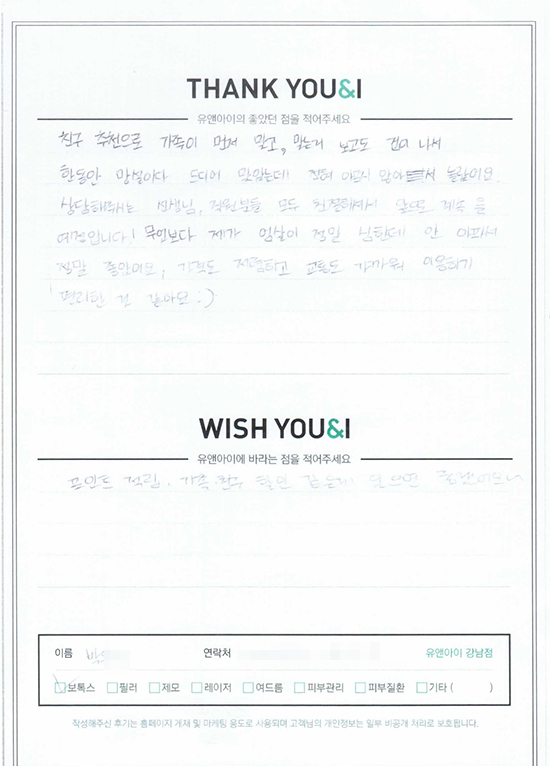 THANK YOU&I
유앤아이의 좋았던 점을 적어주세요
친구 추천으로 가족이 먼저 맞고, 맞는거 보고도 겁이 나서
한동안 망설이다 드디어 맞았는데 전혀 아프지 않아서 놀랐어요.
상담해주시는 선생님, 직원분들 모두 친절하셔서 앞으로 계속 올
예정입니다! 무엇보다 제가 엄살이 정말 심한데 안 아파서
정말 좋았어요, 가격도 저렴하고 교통도 가까워 이용하기
편리한 것 같아요 :)
WISH YOU&I
유앤아이에 바라는 점을 적어주세요
포인트 적립, 가족 친구 할인 같은게 있으면 좋겠어요~
이름 박 연락처 유앤아이 강남점
보톡스 필러 제모 레이저 여드름 피부관리 피부질환 기타 ( )
작성해주신 후기는 홈페이지 게재 및 마케팅 용도로 사용되며 고객님의 개인정보는 일부 비공개 처리로 보호됩니다.